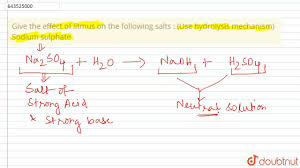 643525000
Give the effect of litmus on the following salts : (Use hydrolysis mechanism)
Sodium sulphate.
Na₂SO₄ + H₂O → NaOH + H₂SO₄
Salt of
Strong Acid
× Strong base
Neutral solution
doubtnut